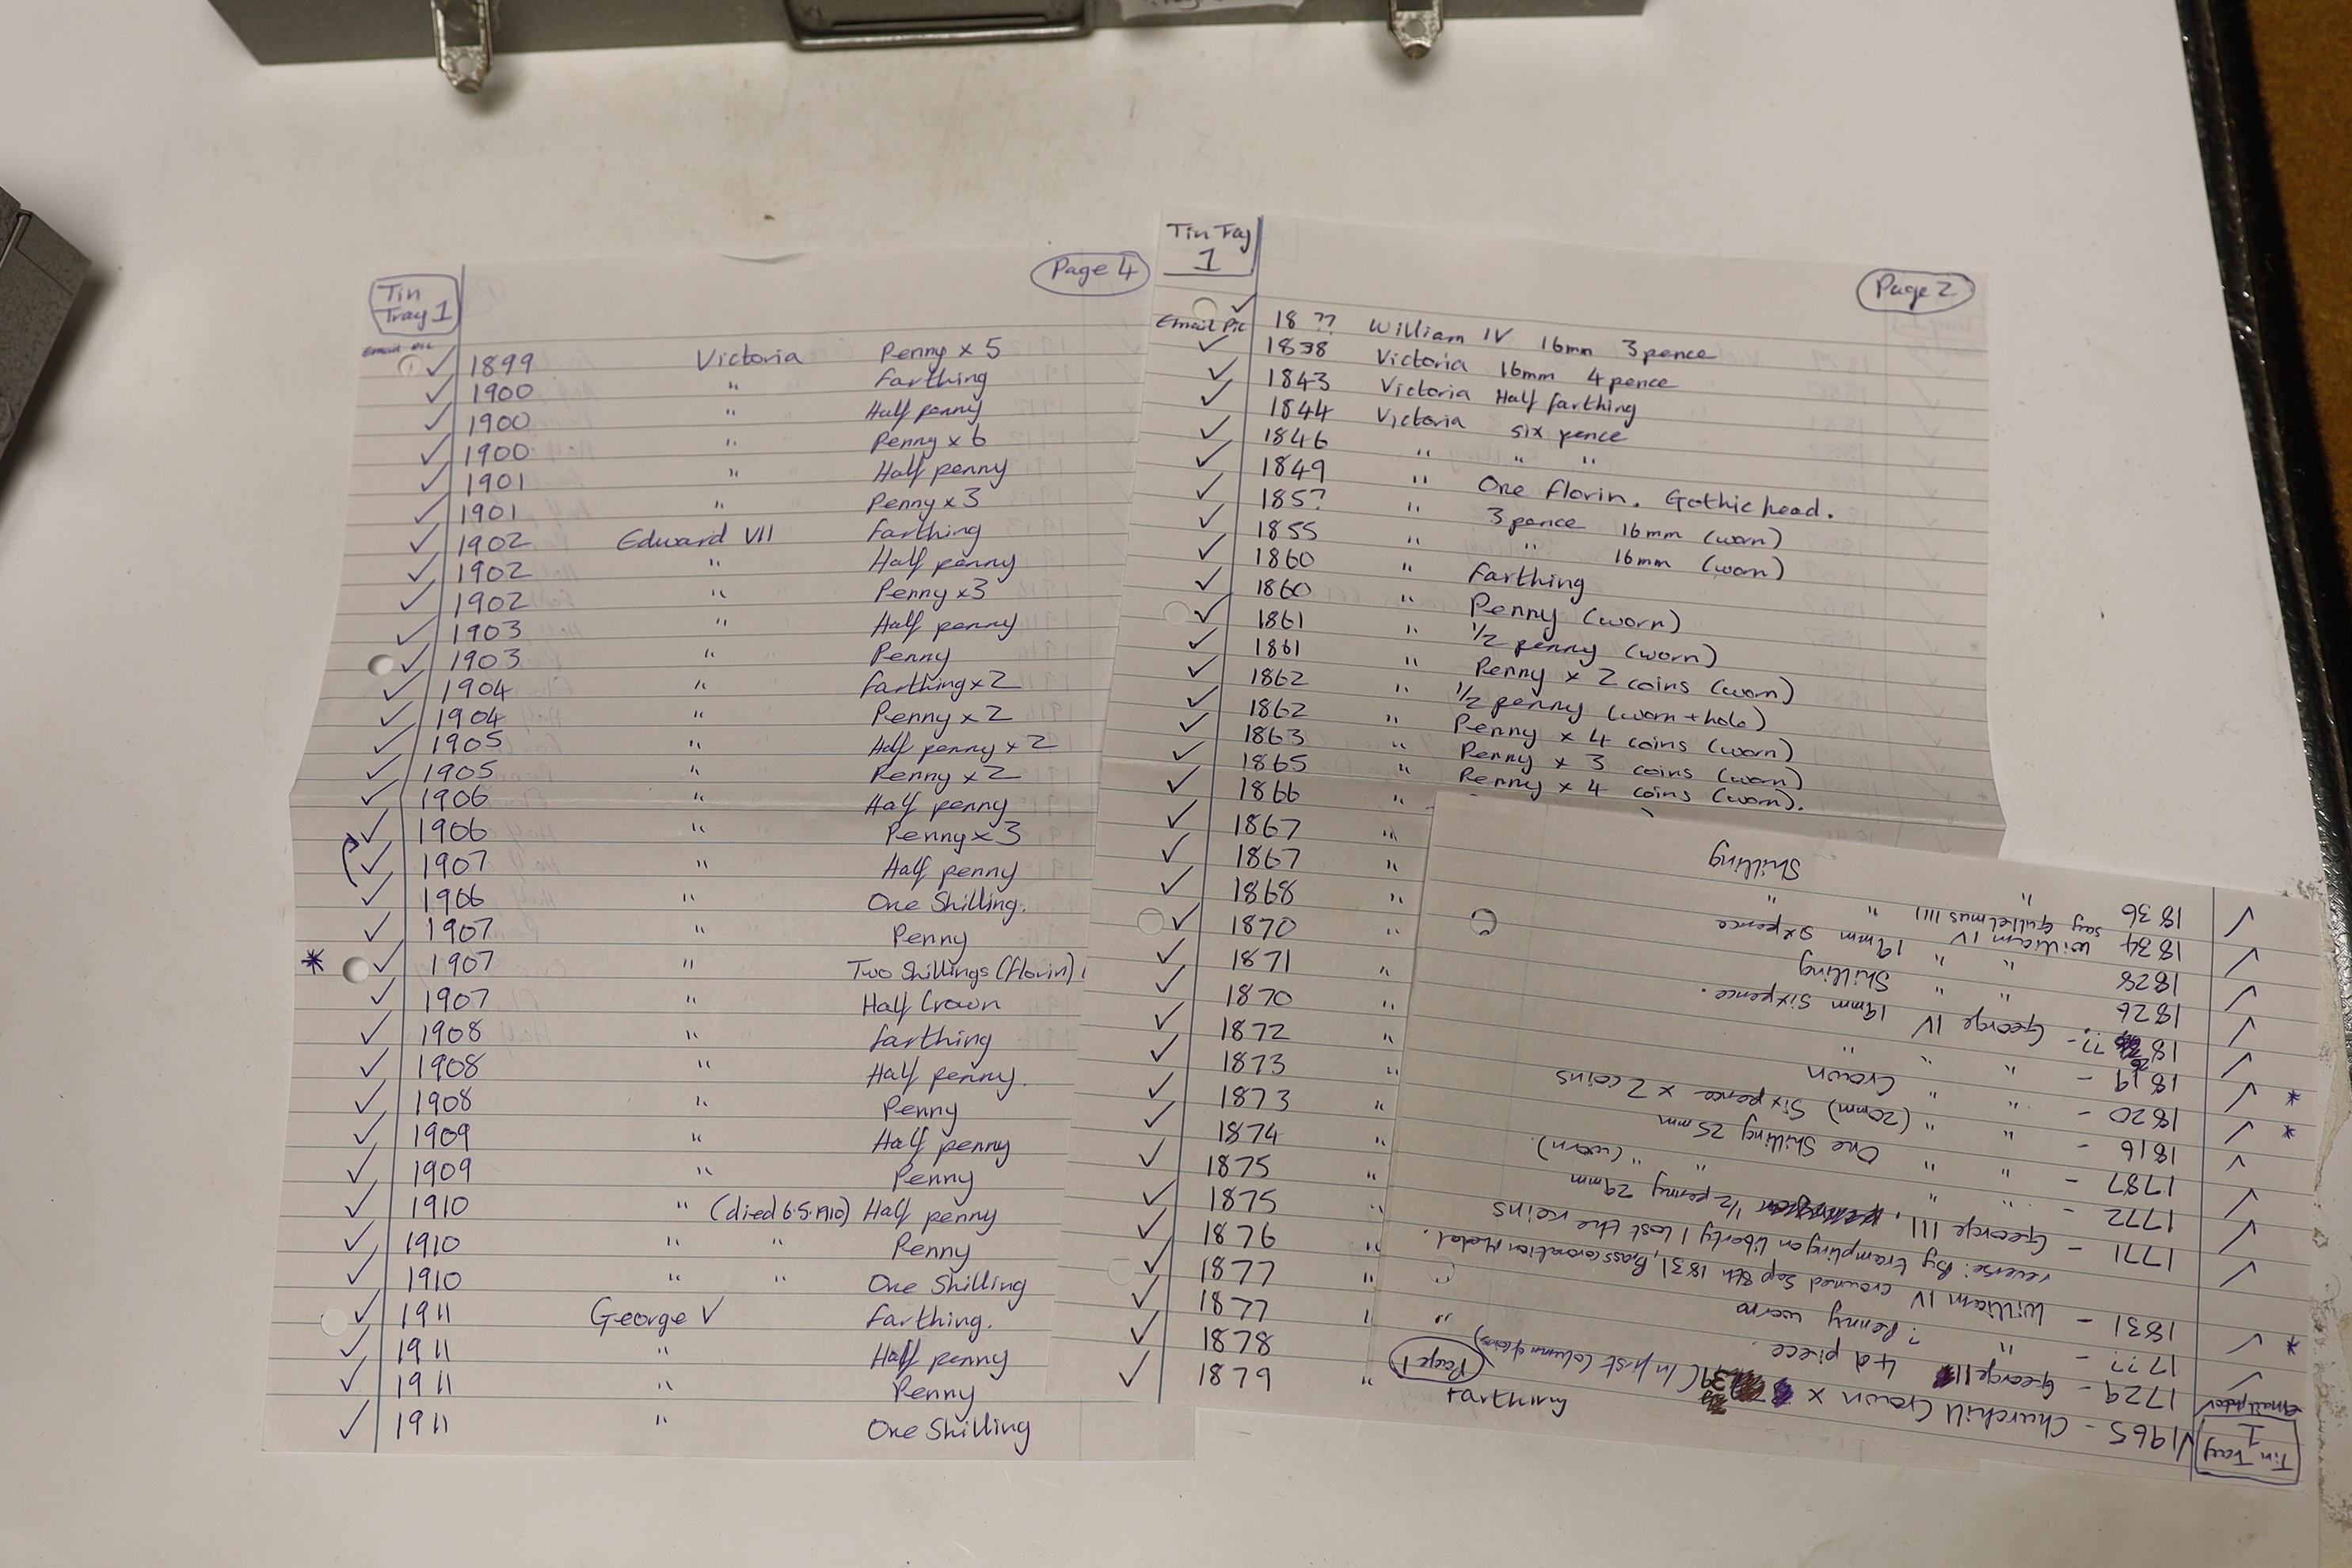 Tin
Tray 1
Page 4
Email pic
✓ 1899 Victoria Penny x 5
✓ 1900 " farthing
✓ 1900 " Half penny
✓ 1900 " Penny x 6
✓ 1901 " Half penny
✓ 1901 " Penny x 3
✓ 1902 Edward VII farthing
✓ 1902 " Half penny
✓ 1902 " Penny x3
✓ 1903 " Half penny
✓ 1903 " Penny
✓ 1904 " farthing x 2
✓ 1904 " Penny x 2
✓ 1905 " Half penny x 2
✓ 1905 " Penny x 2
✓ 1906 " Half penny
✓ 1906 " Penny x 3
✓ 1907 " Half penny
✓ 1906 " One Shilling.
✓ 1907 " Penny
* ✓ 1907 " Two Shillings (florin)
✓ 1907 " Half Crown
✓ 1908 " farthing
✓ 1908 " Half penny.
✓ 1908 " Penny
✓ 1909 " Half penny
✓ 1909 " Penny
✓ 1910 " (died 6.5.1910) Half penny
✓ 1910 " " Penny
✓ 1910 " " One Shilling
✓ 1911 George V farthing.
✓ 1911 " Half penny
✓ 1911 " Penny
✓ 1911 " One Shilling
Tin Tray
1
Page 2
Email Pic
✓ 18?? William IV 16mm 3 pence
✓ 1838 Victoria 16mm 4 pence
✓ 1843 Victoria Half farthing
✓ 1844 Victoria six pence
✓ 1846 " " "
✓ 1849 " One florin. Gothic head.
✓ 185? " 3 pence 16mm (worn)
✓ 1855 " " 16mm (worn)
✓ 1860 " farthing
✓ 1860 " Penny (worn)
✓ 1861 " 1/2 penny (worn)
✓ 1861 " Penny x 2 coins (worn)
✓ 1862 " 1/2 penny (worn + hole)
✓ 1862 " Penny x 4 coins (worn)
✓ 1863 " Penny x 3 coins (worn)
✓ 1865 " Penny x 4 coins (worn).
✓ 1866 "
✓ 1867 "
✓ 1867 "
✓ 1868 "
✓ 1870 "
✓ 1871 "
✓ 1870 "
✓ 1872 "
✓ 1873 "
✓ 1873 "
✓ 1874 "
✓ 1875 "
✓ 1875 "
✓ 1876 "
✓ 1877 "
✓ 1877 "
✓ 1878 "
✓ 1879 " farthing
Tin Tray
1
Page 1
✓ 1965 - Churchill Crown x 39 (In first column of coins)
1729 - George II 4d piece.
✓ 17?? - " ? Penny worn
* ✓ 1831 - William IV crowned Sep 8th 1831, Brass coronation Medal.
reverse: By trampling on liberty I lost the reins
✓ 1771 - George III, 1/2 penny 29mm
✓ 1772 - " " " (worn).
✓ 1787 - " " One Shilling 25mm
✓ 1816 - " " (20mm) Sixpence x 2 coins
* ✓ 1820 - " " Crown
* ✓ 1819 - " " "
✓ 18 ?? - George IV 19mm Sixpence.
✓ 1826 " " Shilling
✓ 1828 " " 19mm Sixpence
✓ 1834 William IV " "
say Gulielmus IIII)
✓ 1836 " Shilling